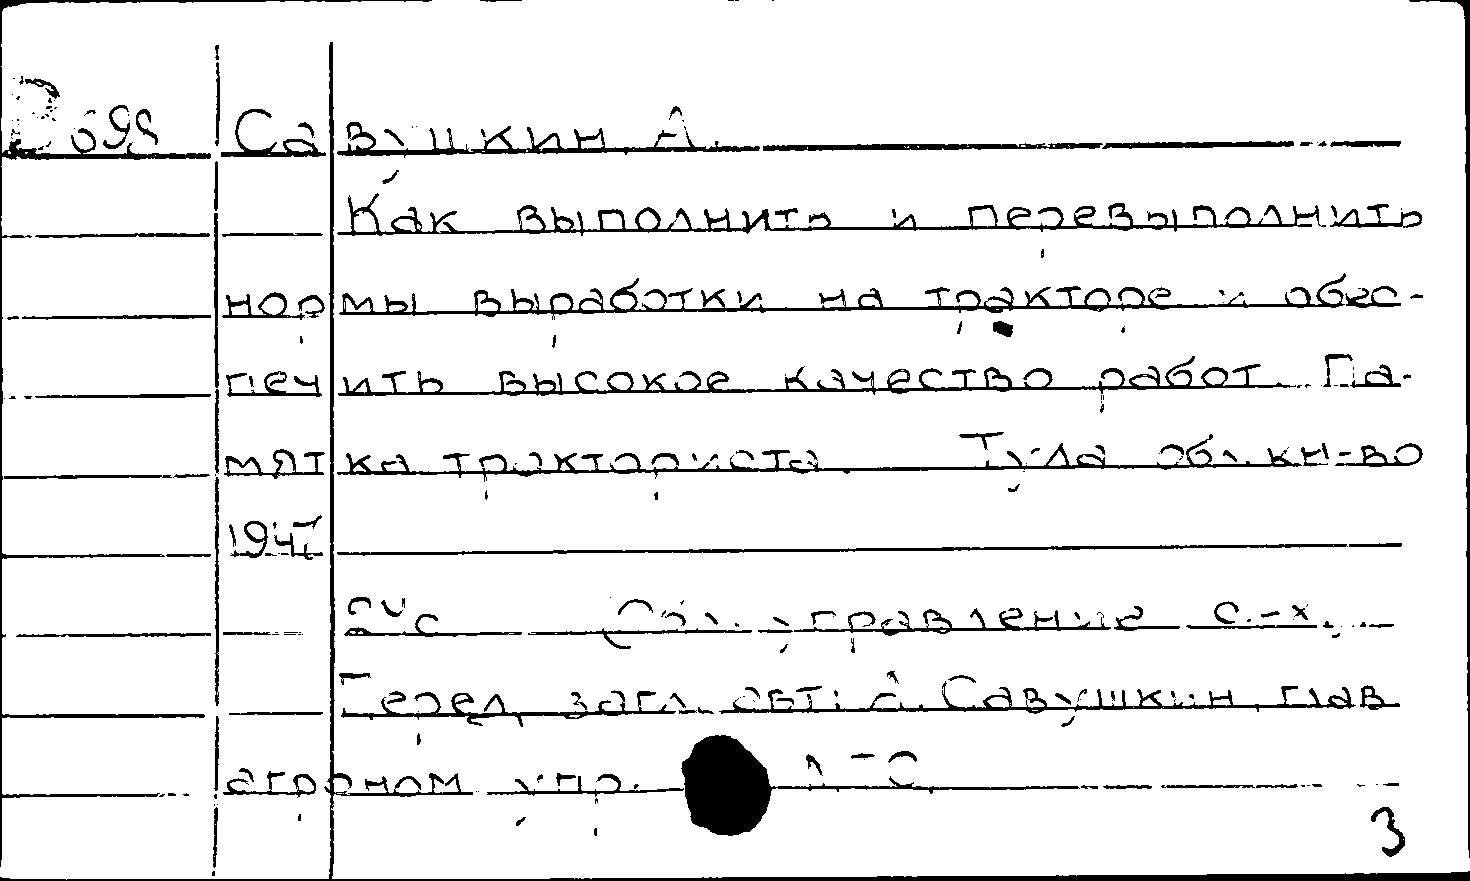 Савушкин, А.
Как выполнить и перевыполнить
нормы выработки на тракторе и обес-
печить высокое качество работ. Па-
мятка тракториста. Тула обл. кн-во
с. (Обл. управление с.-х.
Перед загл. авт: А. Савушкин, глав
агроном упр.
3